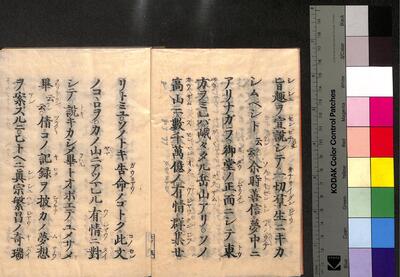 旨趣ヲ宣説シテ一切群生ニキカ
シムヘシト云云爾時善信夢中ニ
アリナガラ御堂ノ正面ニシテ東
方ヲミレハ峨々タル岳山アリソノ
高山ニ數千萬億ノ有情群集セ
リトミユソノトキ告命ノゴトク此文
ノコヽロヲカノ山ニアツマレル有情ニ對
シテ説キカシメ畢トオボエテユメサメ
畢云云倩コノ記録ヲ披カ夢想
ヲ案スルニヒトヘニ真宗繁昌ノ奇瑞
KODAK Color Control Patches
Black
3/Color
White
Magenta
Red
Yellow
Green
Cyan
Blue